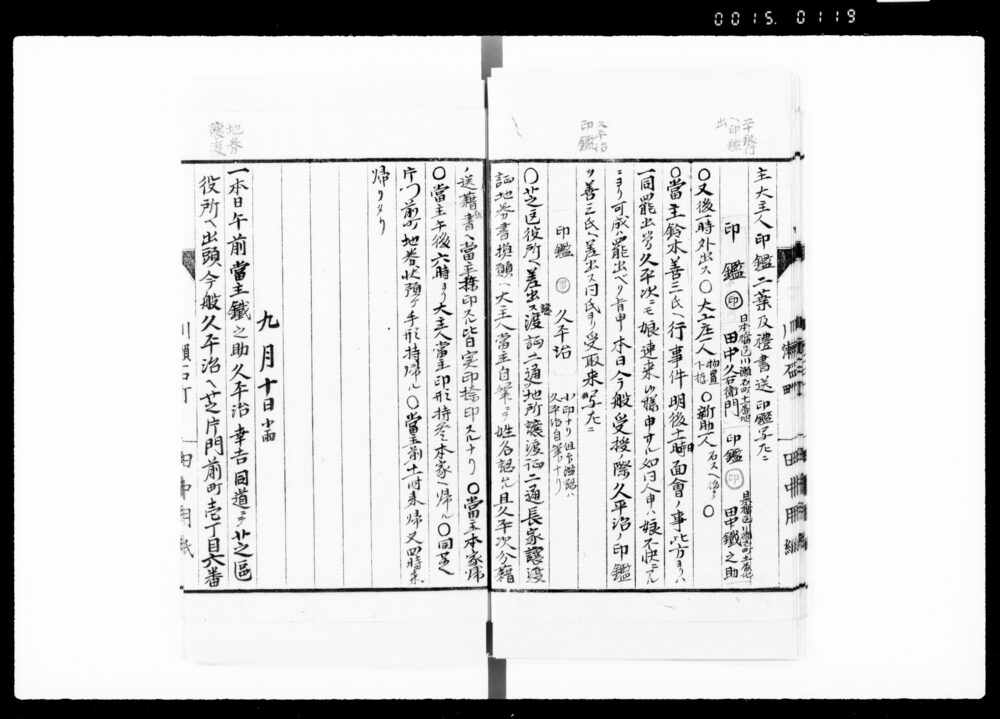 0015. 0119
二十銀行
ヘ印鑑
出
久平治
印鑑
主大主人印鑑二葉及禮書送印鑑写左ニ
日本橋区川瀬石町十一番地
印鑑 印 田中久右衛門
日本橋区川瀬石町十一番地
印鑑 印 田中鐵之助
〇又後一時外出ス〇大工庄一人 物置 〇新助一人 〇
〇當主鈴木善三氏ヘ行事件明後十二時面會ノ事此方ヨリハ
一同罷出ツル久平次ニモ娘連来ル様申サル如日人申ハ娘不快ニテ
ニヨリ可成ハ罷出ベク旨申本日今般受授際久平治ノ印鑑
ヲ善三氏ヘ差出ス同氏ヨリ受取来写左ニ
印鑑 印 久平治
小印ナリ但有鑑認ハ
久平治自筆ナリ
〇芝区役所ヘ差出ス譲渡証二通地所譲渡証二通長家譲渡
証地券書換願ハ大主人當主自筆ニテ姓名認ム且久平次分籍
ノ送籍書ヘ當主捺印スル皆実印捺印スルナリ 〇當主本家帰
〇當主午後六時ヨリ大主人當主印形持参本家ヘ帰ル〇同芝
片門前町地券状預ケ手形持帰ル〇當主前十一時来帰又四時来
帰リタリ
川瀬石町
田中用紙
地券
譲渡
九月十日 小雨
一本日午前當主鐵之助久平治幸吉同道ニテ芝區
役所ヘ出頭今般久平治ヘ芝片門前町壱丁目六番
川瀬石町
田中用紙